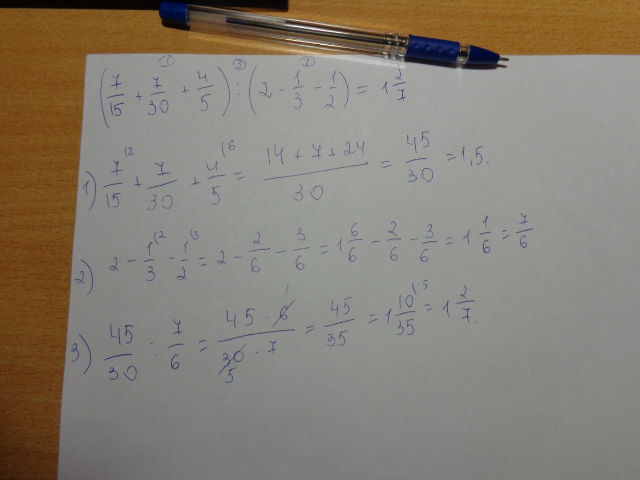 ① ③ ②
(7/15 + 7/30 + 4/5) : (2 - 1/3 - 1/2) = 1 2/7
1) 7/15 (2 + 7/30 + 4/5 (6 = (14 + 7 + 24)/30 = 45/30 = 1,5.
2) 2 - 1/3 (2 - 1/2 (3 = 2 - 2/6 - 3/6 = 1 6/6 - 2/6 - 3/6 = 1 1/6 = 7/6
3) 45/30 : 7/6 = (45 · 6 1)/(30 5 · 7) = 45/35 = 1 10/35 (:5 = 1 2/7.